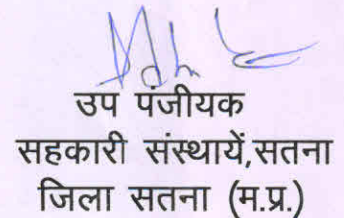 उप पंजीयक
सहकारी संस्थायें,सतना
जिला सतना (म.प्र.)